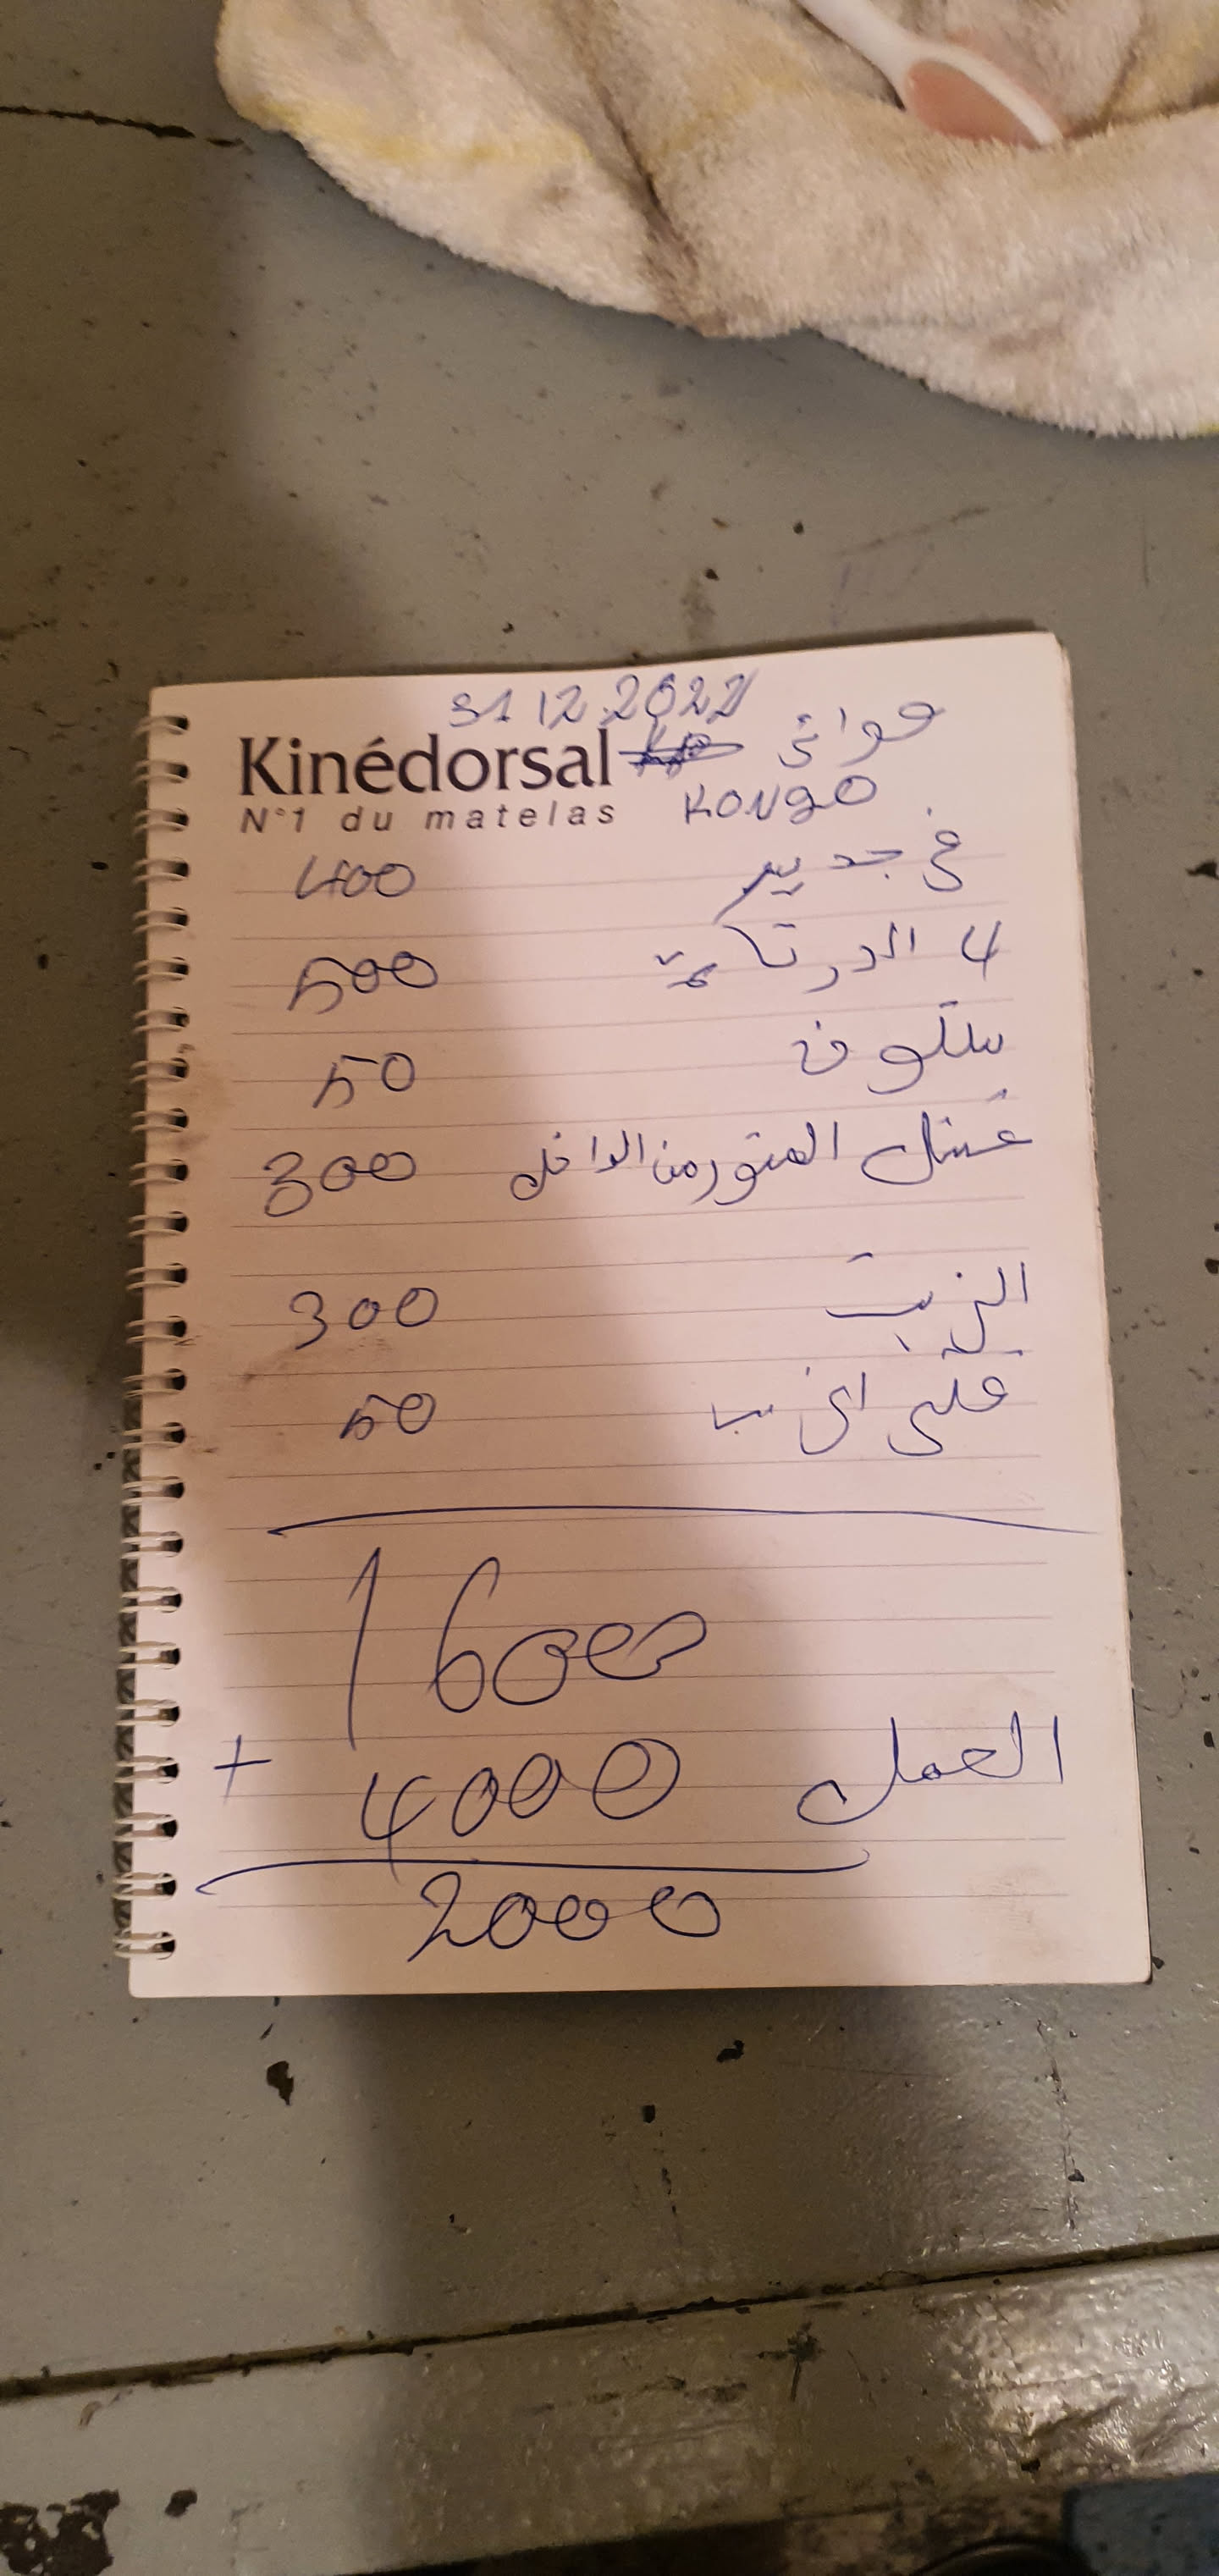 31.12.2022
Kinédorsal
N°1 du matelas
KONgO
400 جديد
500 4
50 سلكون
300 غسل المتور من الداخل
300 الزيت
50
1600
+ 4000 العمل
2000